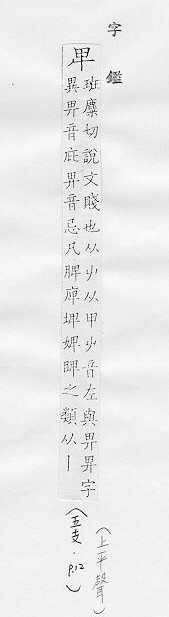 字鑑
𤰞
班麋切說文賤也从𠂇从甲𠂇音左與畀畁字
異畀音庇畁音忌凡脾庳埤婢睥之類从丨
(五支.p.12)
(上平聲)